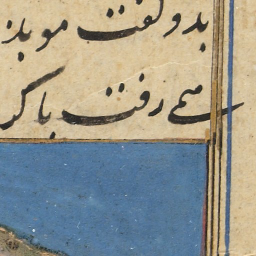 بدو گفت موبد
همی رفت با کر